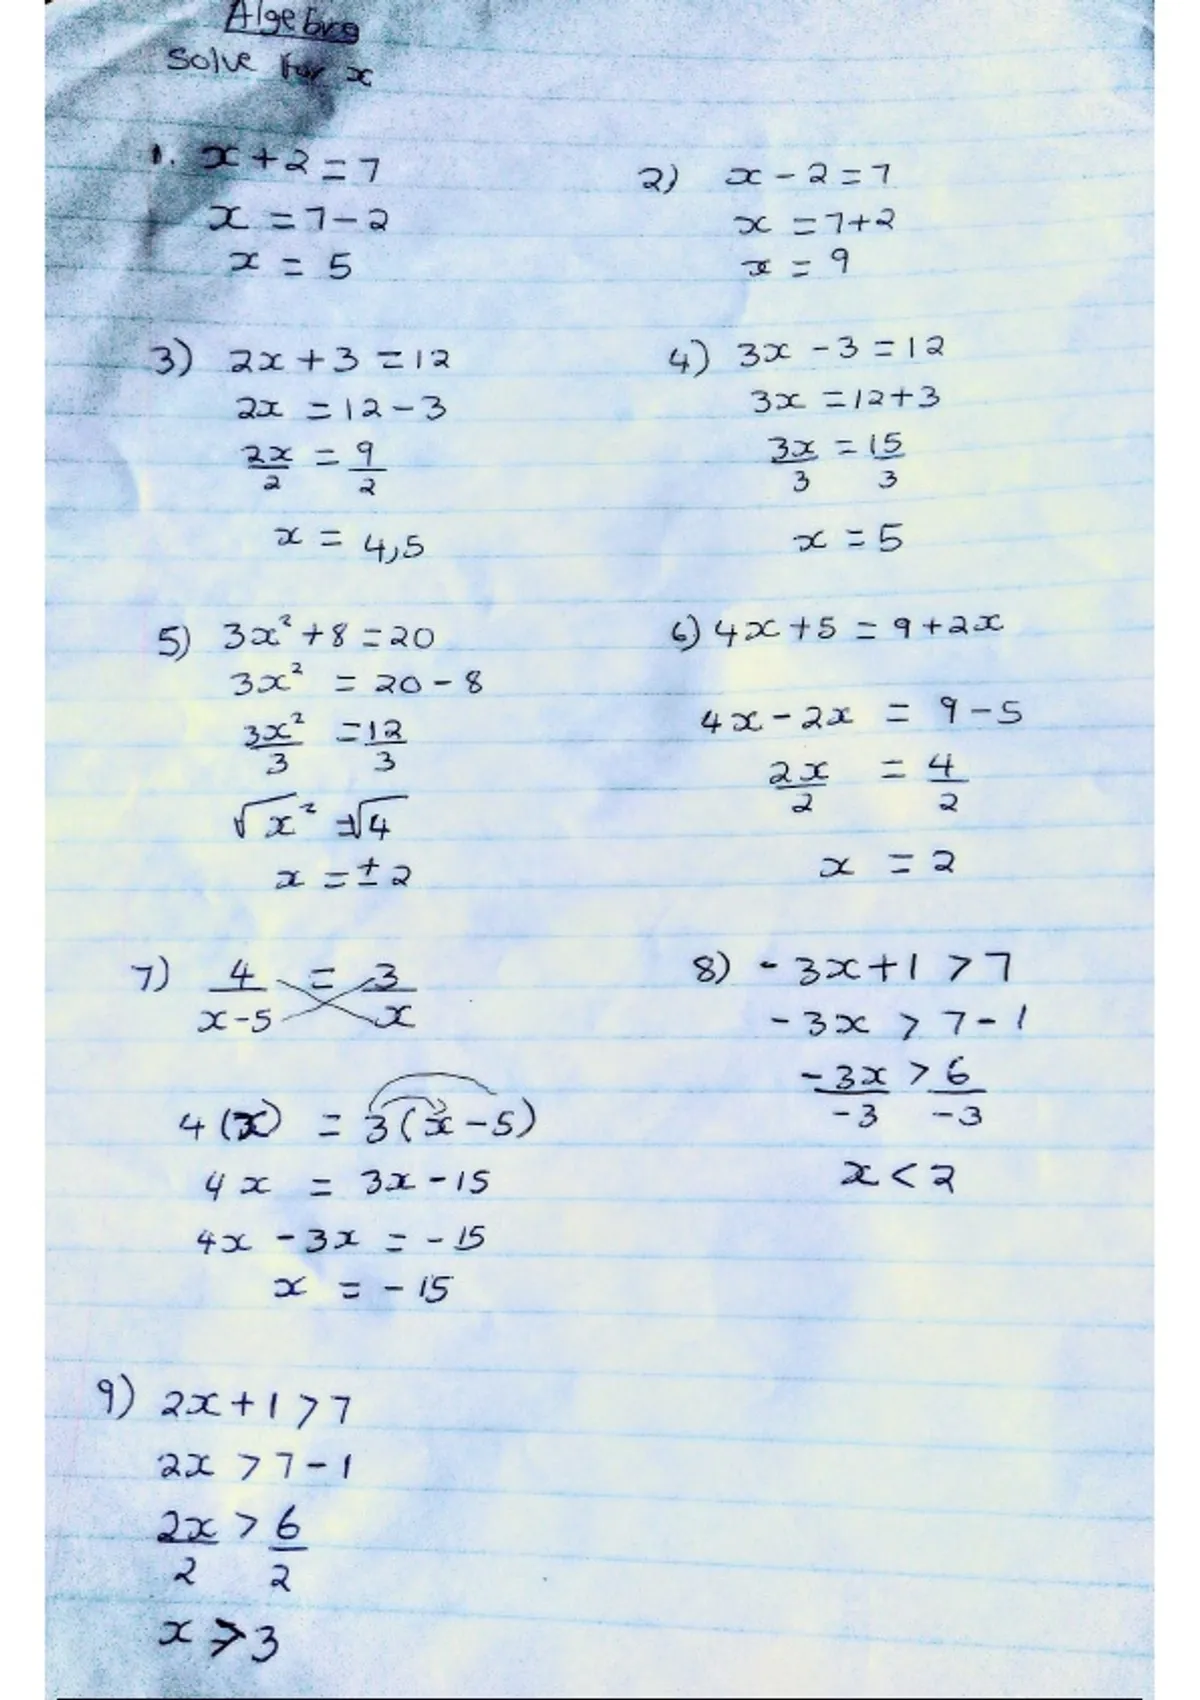 Algebra
Solve for x
1. x + 2 = 7
x = 7 - 2
x = 5
2) x - 2 = 7
x = 7 + 2
x = 9
3) 2x + 3 = 12
2x = 12 - 3
2x/2 = 9/2
x = 4,5
4) 3x - 3 = 12
3x = 12 + 3
3x/3 = 15/3
x = 5
5) 3x² + 8 = 20
3x² = 20 - 8
3x²/3 = 12/3
√x² = √4
x = ± 2
6) 4x + 5 = 9 + 2x
4x - 2x = 9 - 5
2x/2 = 4/2
x = 2
7) 4/x-5 = 3/x
4(x) = 3(x - 5)
4x = 3x - 15
4x - 3x = -15
x = -15
8) -3x + 1 > 7
-3x > 7 - 1
-3x/-3 > 6/-3
x < 2
9) 2x + 1 > 7
2x > 7 - 1
2x/2 > 6/2
x > 3